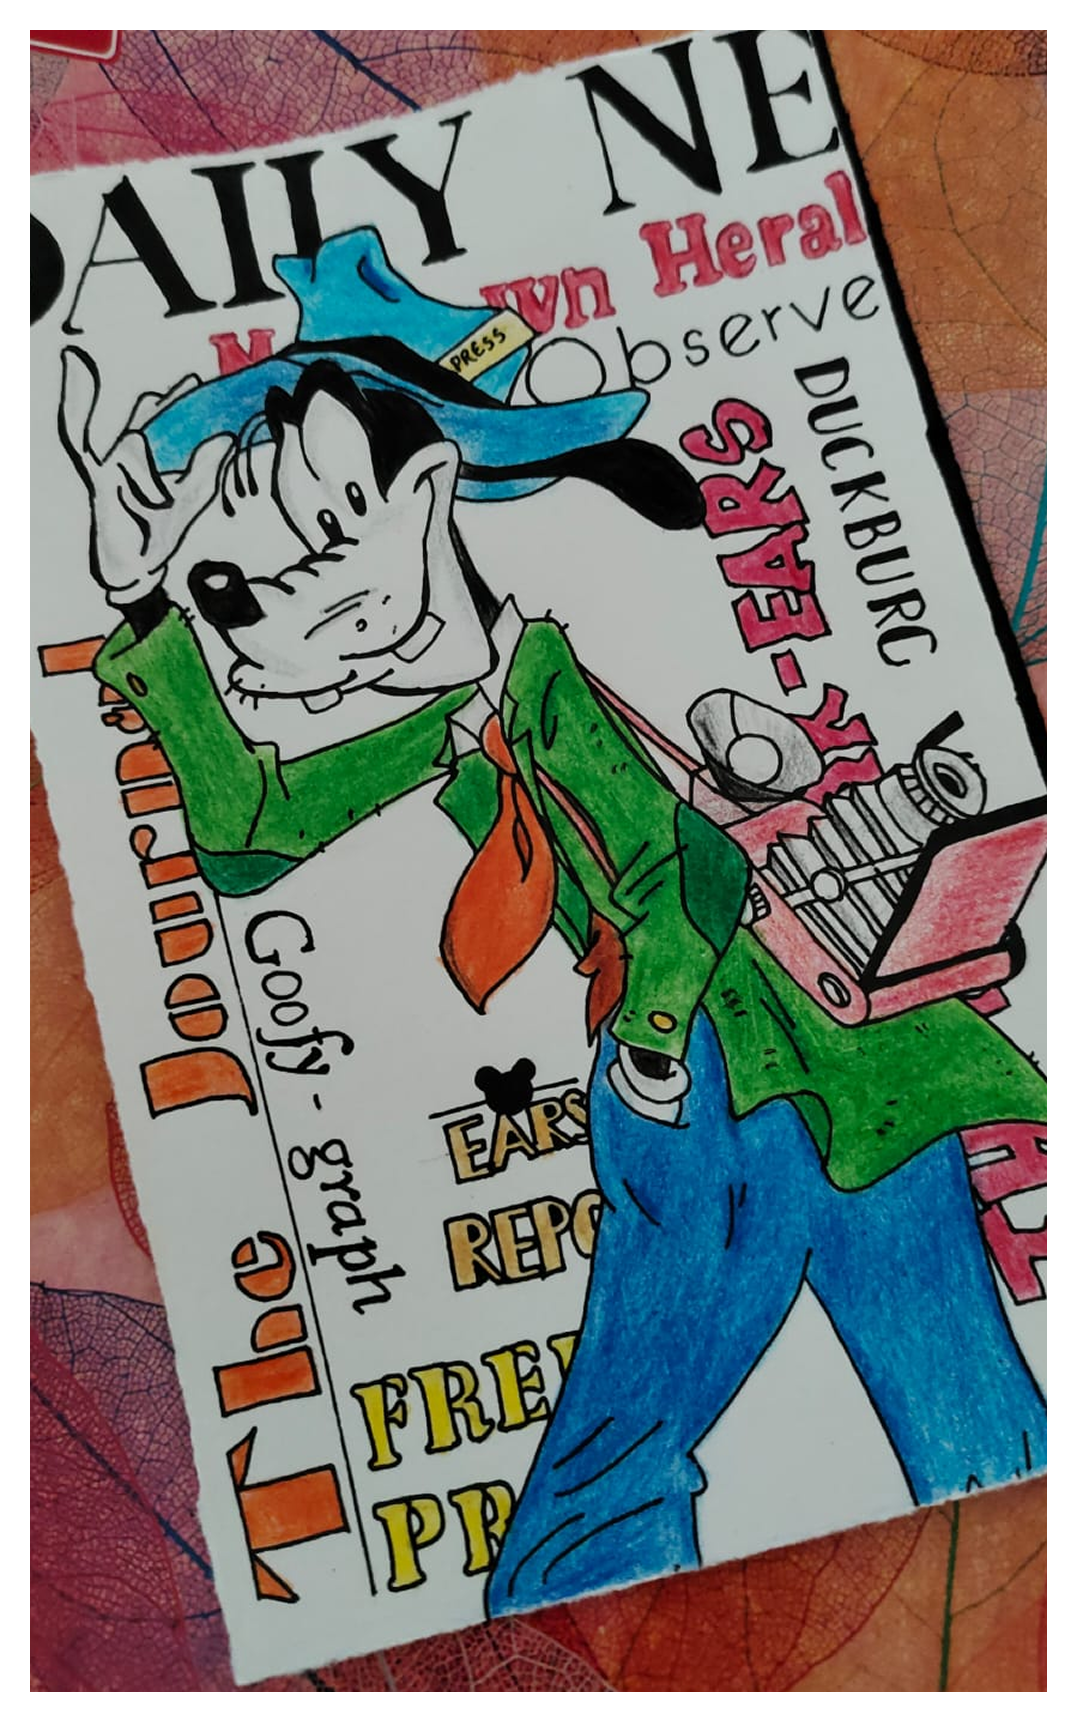 DAILY NE
wn Heral
Observe
PRESS
DUCKBURG
EARS
The Journal
Goofy-graph
EARS
REPO
FREE
PR